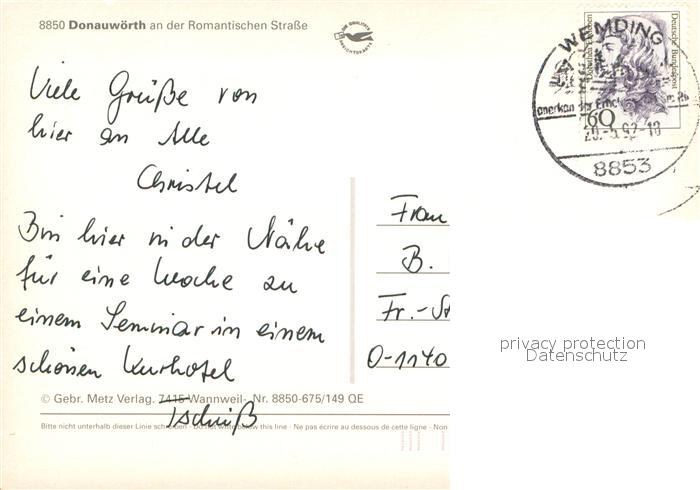 8850 Donauwörth an der Romantischen Straße
Viele Grüße von
hier an Alle
Christel
Bin hier in der Nähe
für eine Woche zu
einem Seminar in einem
schönen Kurhotel
Tschüß
WEMDING
Deutsche Bundespost
60
8853
Frau
B.
Fr.-St
O-1140
privacy protection
Datenschutz
© Gebr. Metz Verlag. 7415 Wannweil- Nr. 8850-675/149 QE
Bitte nicht unterhalb dieser Linie schreiben - Do not write below this line - Ne pas écrire au dessous de cette ligne - Non